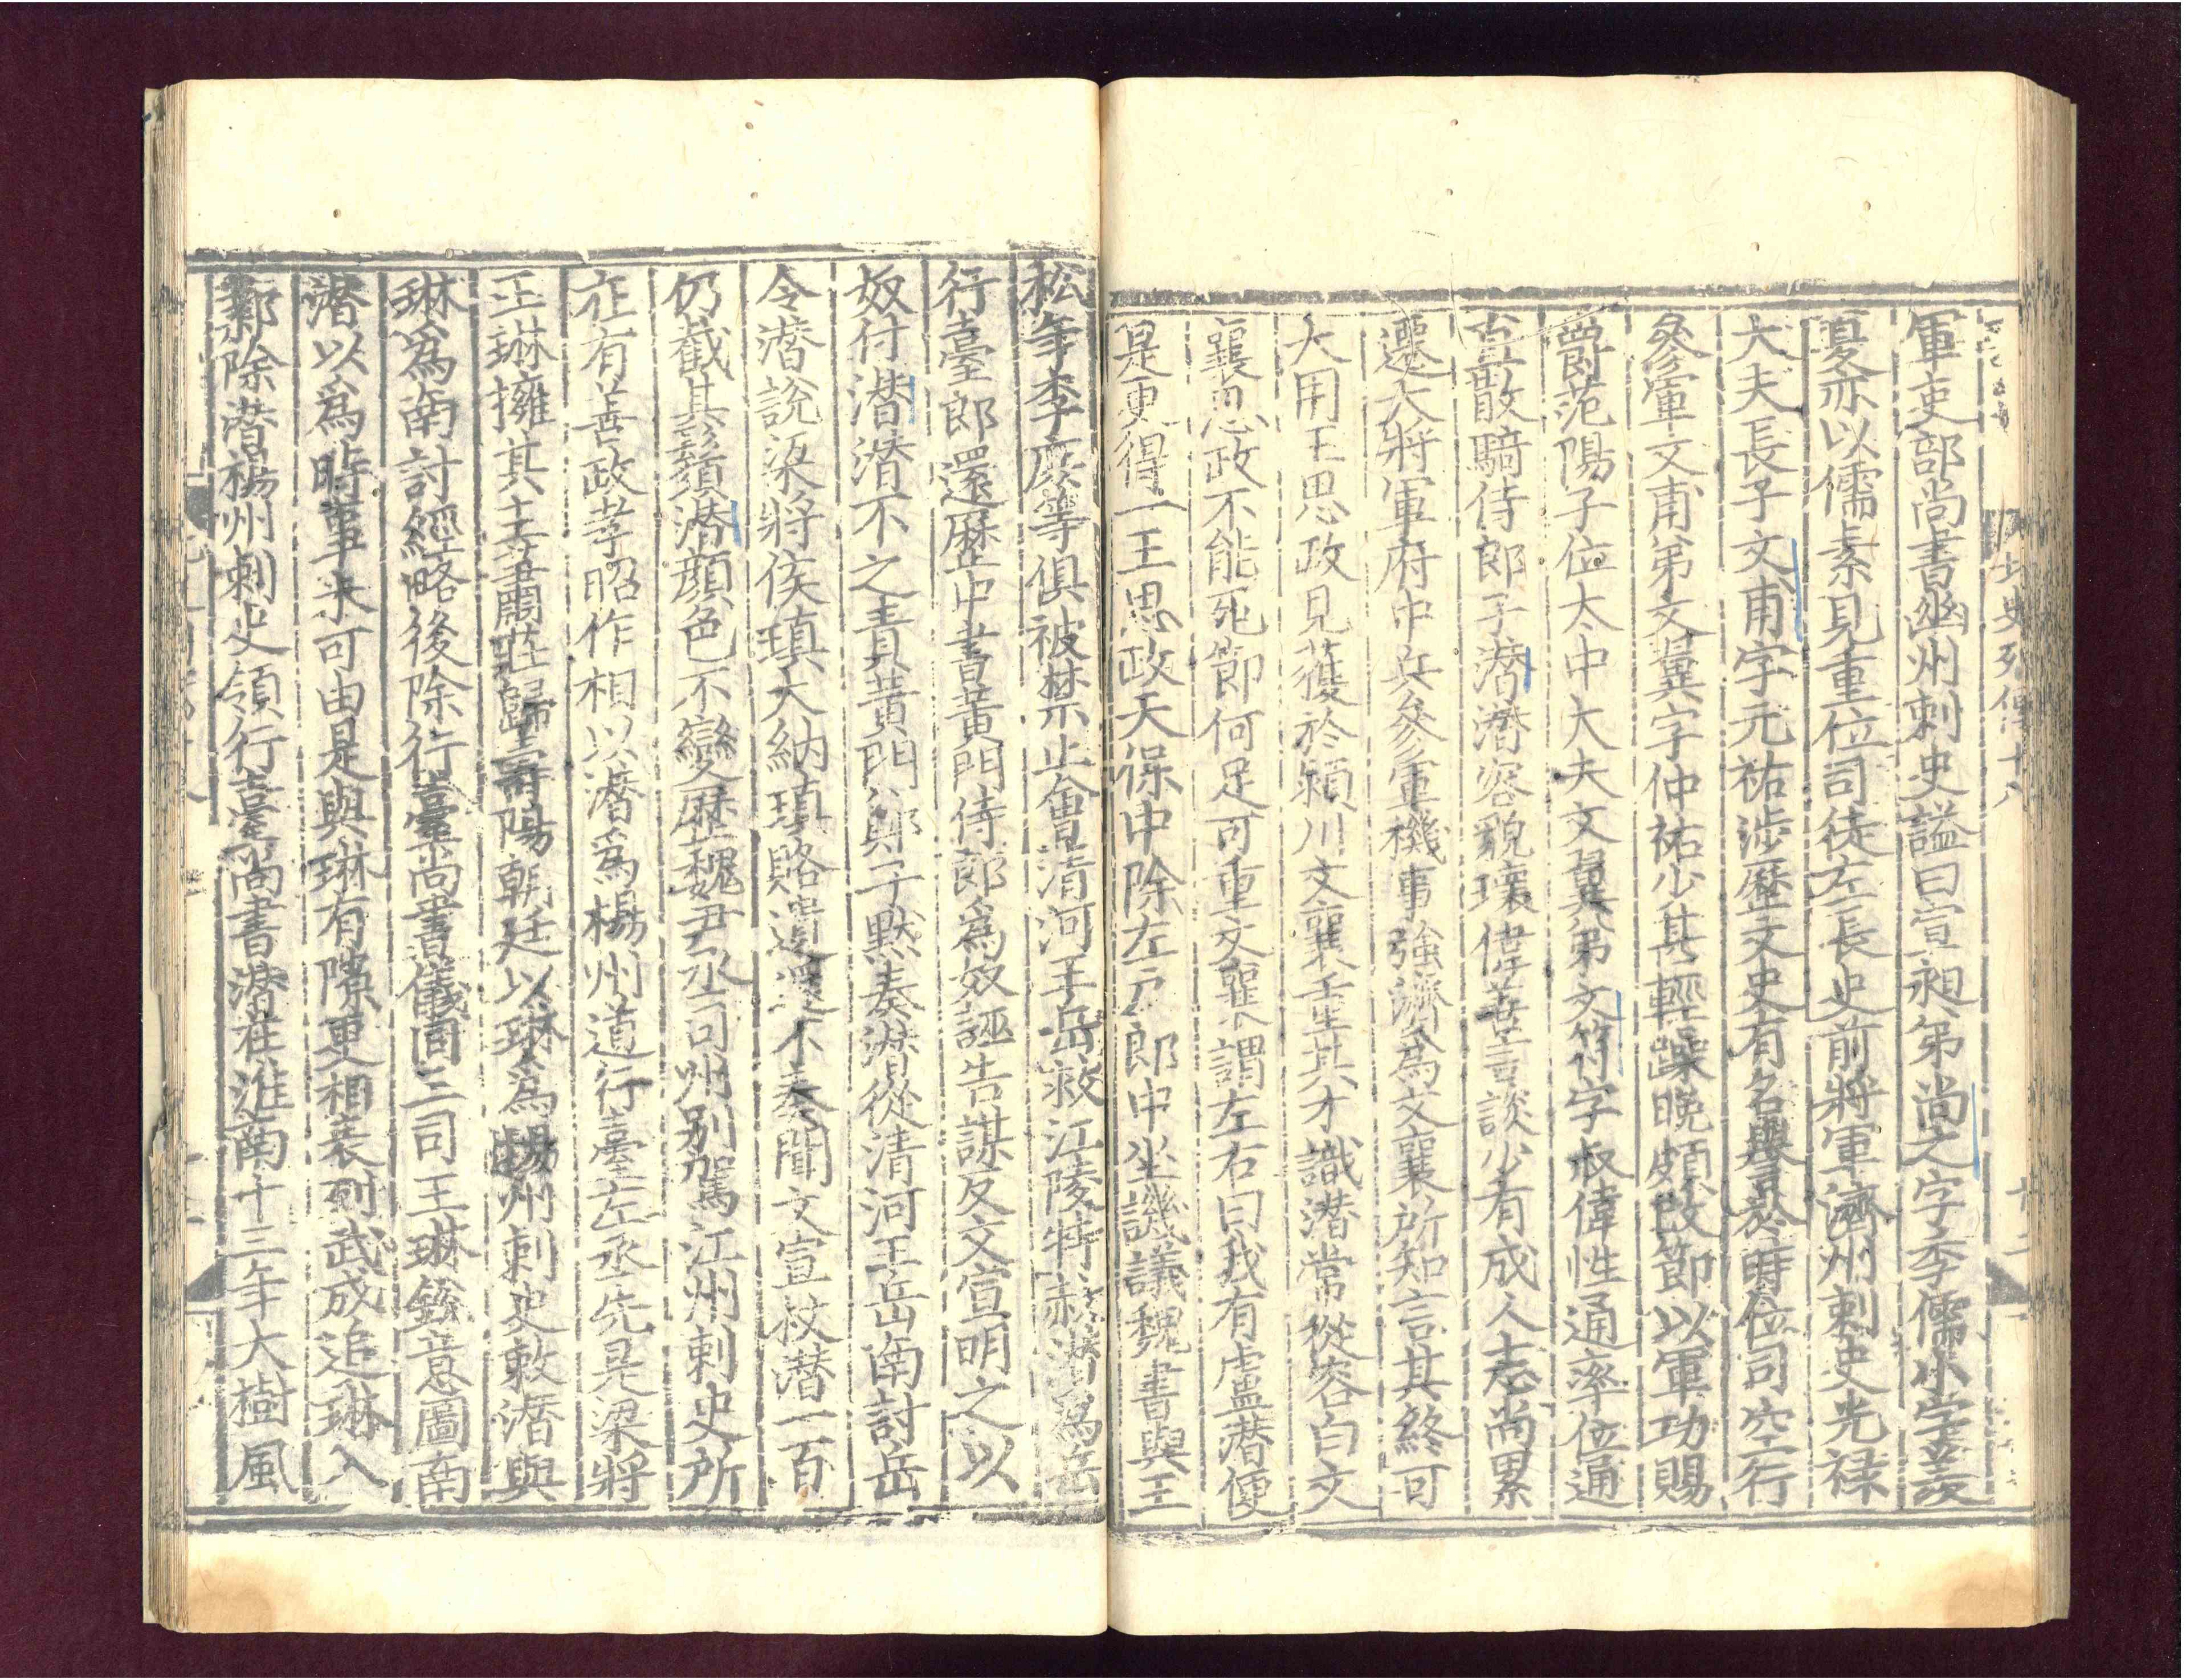 北史列傳十八
軍吏部尚書幽州刺史謚曰宣昶弟尚之字季儒小字羨
夏亦以儒素見重位司徒左長史前將軍濟州刺史光祿
大夫長子文甫字元祐涉歷文史有名譽於時位司空行
參軍文甫弟文翼字仲祐少甚輕躁晚頗改節以軍功賜
爵范陽子位太中大夫文翼弟文符字叔偉性通率位通
直散騎侍郎子潛潛容貌瓌偉善言談少有成人志尚累
遷大將軍府中兵參軍機事強濟爲文襄所知言其終可
大用王思政見獲於潁川文襄重其才識潛常從容白文
襄思政不能死節何足可重文襄謂左右曰我有盧潛便
是更得一王思政天保中除左戶郎中坐譏議魏書與王
松年李庶等俱被禁止會清河王岳救江陵特赦潛爲岳
行臺郎還歷中書黃門侍郎爲奴誣告謀反文宣明之以
奴付潛潛不之責黃門鄭子默奏潛從清河王岳南討岳
令潛說梁將侯瑱大納瑱賂遺還不奏聞文宣杖潛一百
仍截其鬚潛顏色不變歷魏尹丞司州別駕江州刺史所
在有善政孝昭作相以潛爲楊州道行臺左丞先是梁將
王琳擁其主蕭莊歸壽陽朝廷以琳爲楊州刺史敕潛與
琳爲南討經略後除行臺尚書儀同三司王琳銳意圖南
潛以爲時事未可由是與琳有隙更相表列武成追琳入
鄴除潛楊州刺史領行臺尚書潛在淮南十三年大樹風